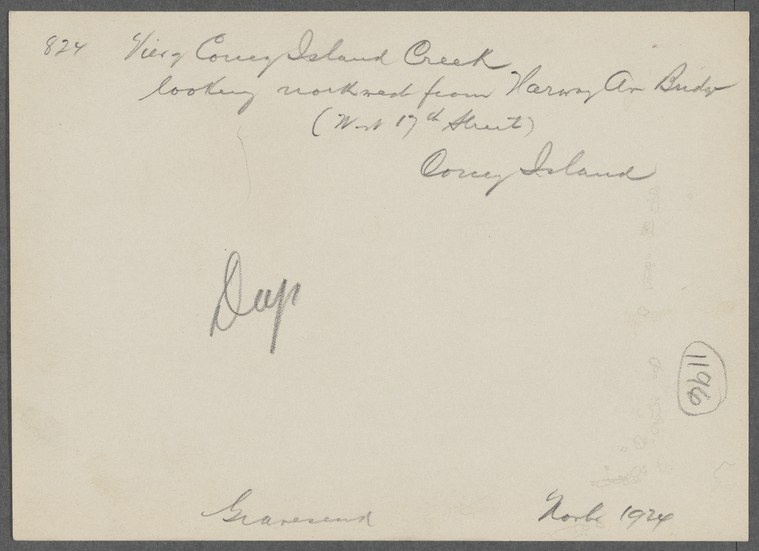 824 View of Coney Island Creek
looking northwest from Harway Av Bridge
(West 17th Street)
Coney Island
Dup
1196
Gravesend
1924